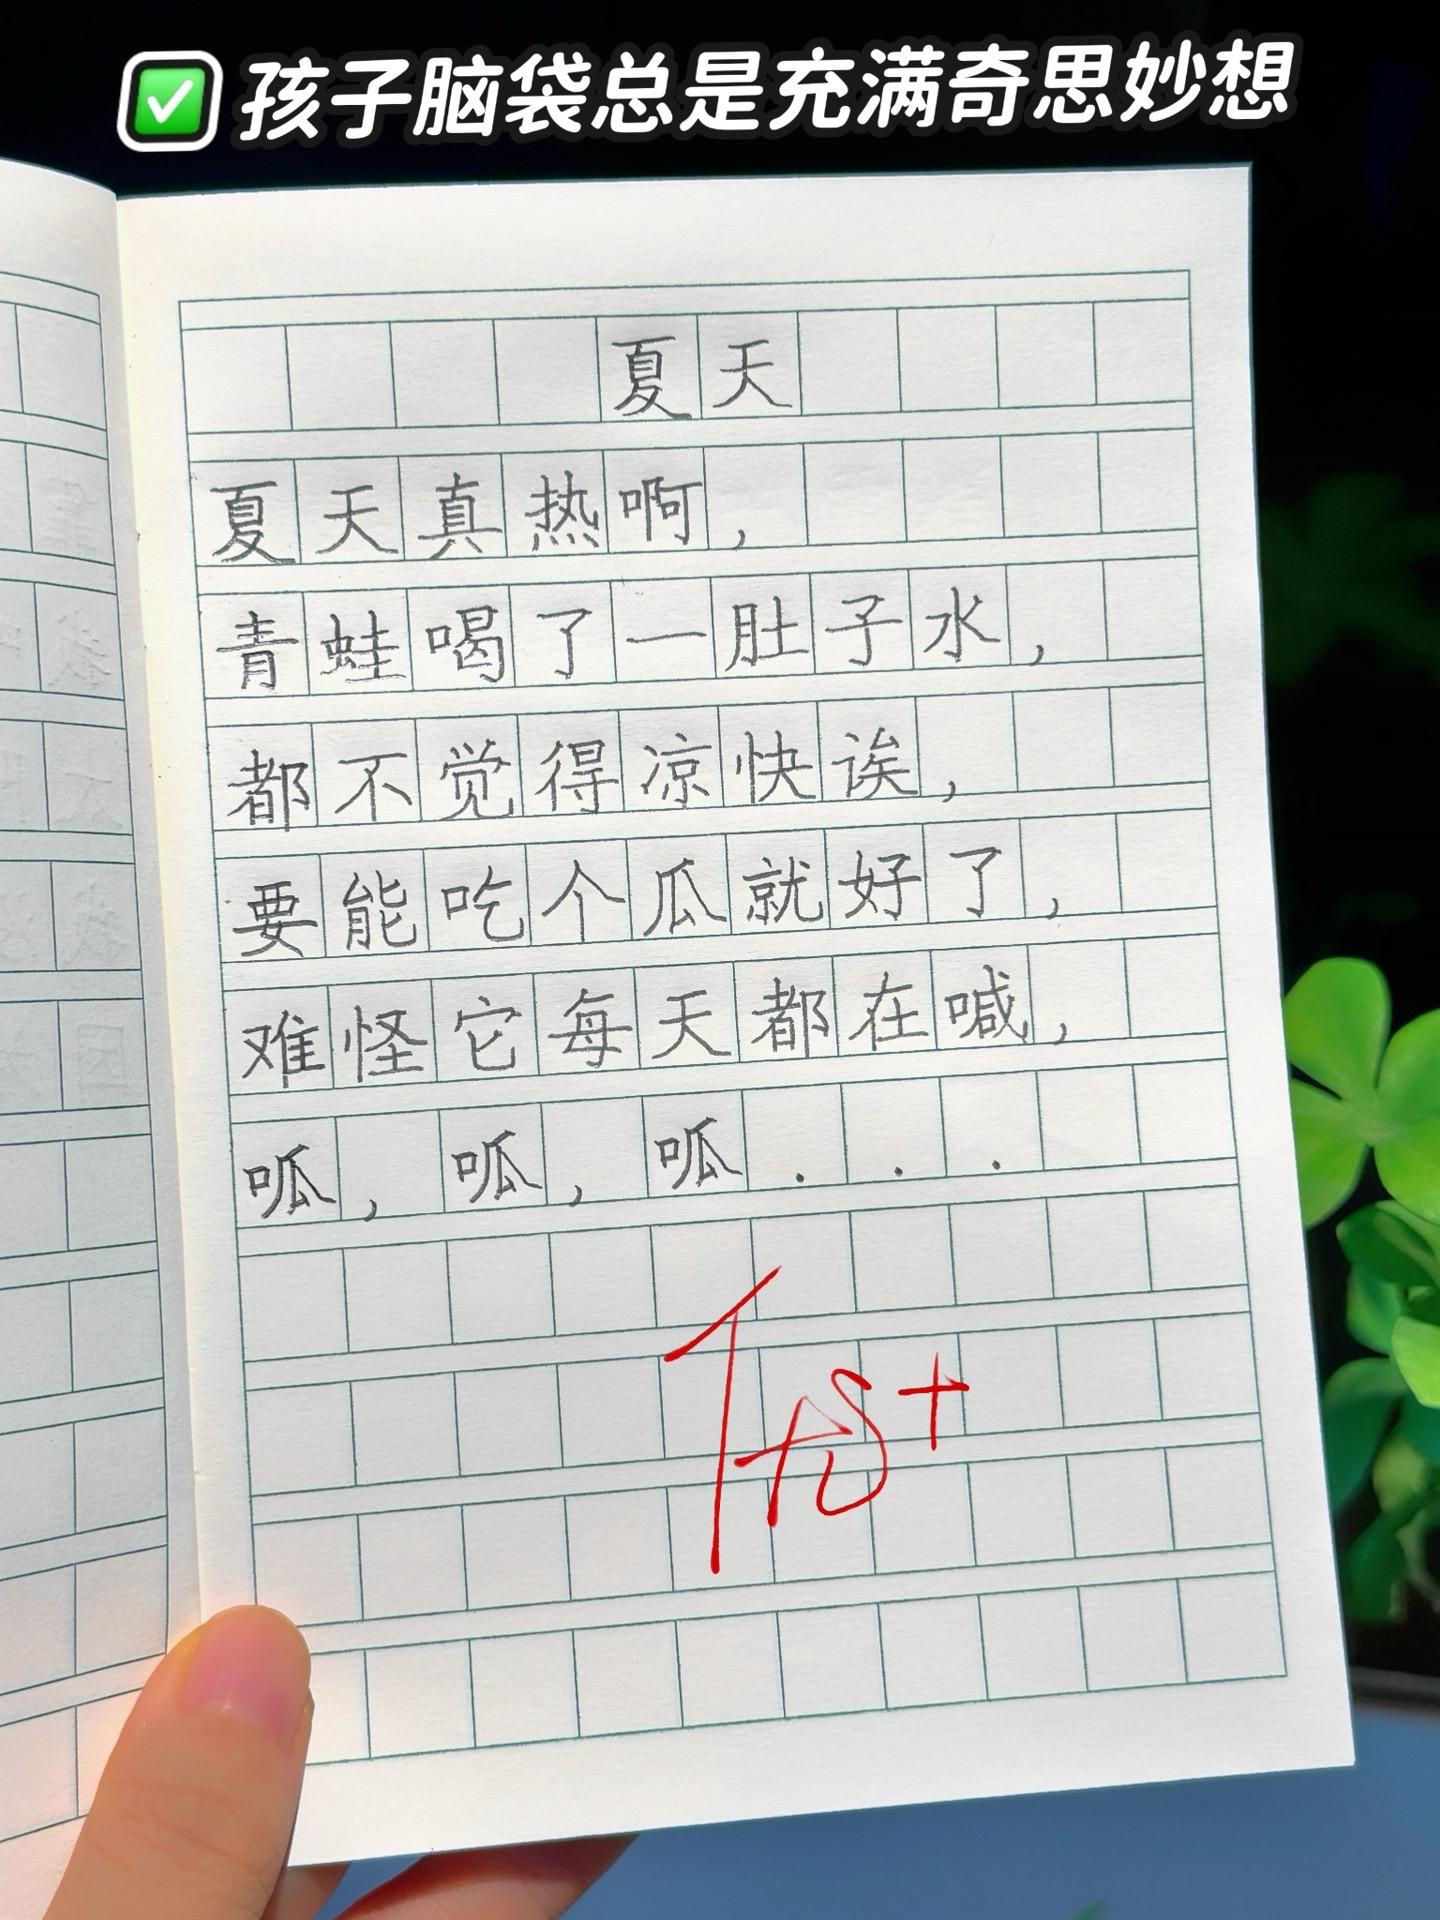 ✅孩子脑袋总是充满奇思妙想
夏天
夏天真热啊，
青蛙喝了一肚子水，
都不觉得凉快诶，
要能吃个瓜就好了，
难怪它每天都在喊，
呱，呱，呱...